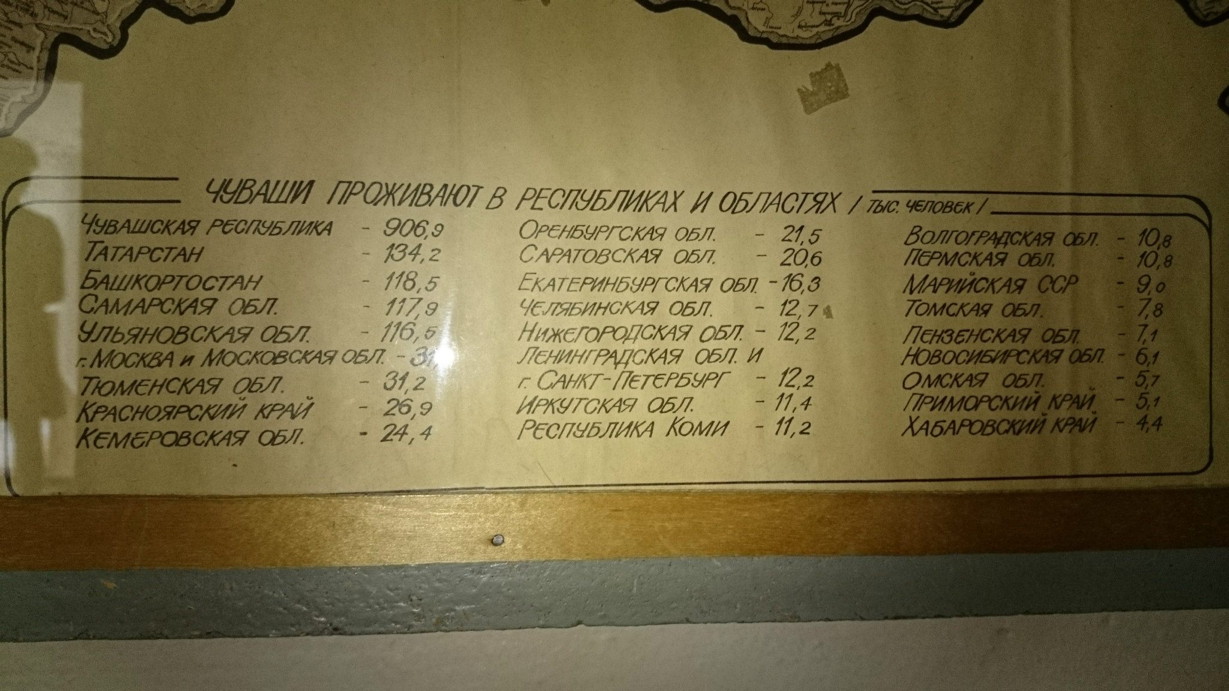 ЧУВАШИ ПРОЖИВАЮТ В РЕСПУБЛИКАХ И ОБЛАСТЯХ / ТЫС. ЧЕЛОВЕК /
ЧУВАШСКАЯ РЕСПУБЛИКА - 906,9
ТАТАРСТАН - 134,2
БАШКОРТОСТАН - 118,5
САМАРСКАЯ ОБЛ. - 117,9
УЛЬЯНОВСКАЯ ОБЛ. - 116,5
г. МОСКВА И МОСКОВСКАЯ ОБЛ. -
ТЮМЕНСКАЯ ОБЛ. - 31,2
КРАСНОЯРСКИЙ КРАЙ - 26,9
КЕМЕРОВСКАЯ ОБЛ. - 24,4
ОРЕНБУРГСКАЯ ОБЛ. - 21,5
САРАТОВСКАЯ ОБЛ. - 20,6
ЕКАТЕРИНБУРГСКАЯ ОБЛ. - 16,3
ЧЕЛЯБИНСКАЯ ОБЛ. - 12,7
НИЖЕГОРОДСКАЯ ОБЛ. - 12,2
ЛЕНИНГРАДСКАЯ ОБЛ. И
г. САНКТ-ПЕТЕРБУРГ - 12,2
ИРКУТСКАЯ ОБЛ. - 11,4
РЕСПУБЛИКА КОМИ - 11,2
ВОЛГОГРАДСКАЯ ОБЛ. - 10,8
ПЕРМСКАЯ ОБЛ. - 10,8
МАРИЙСКАЯ ССР - 9,0
ТОМСКАЯ ОБЛ. - 7,8
ПЕНЗЕНСКАЯ ОБЛ. - 7,1
НОВОСИБИРСКАЯ ОБЛ. - 6,1
ОМСКАЯ ОБЛ. - 5,7
ПРИМОРСКИЙ КРАЙ - 5,1
ХАБАРОВСКИЙ КРАЙ - 4,4